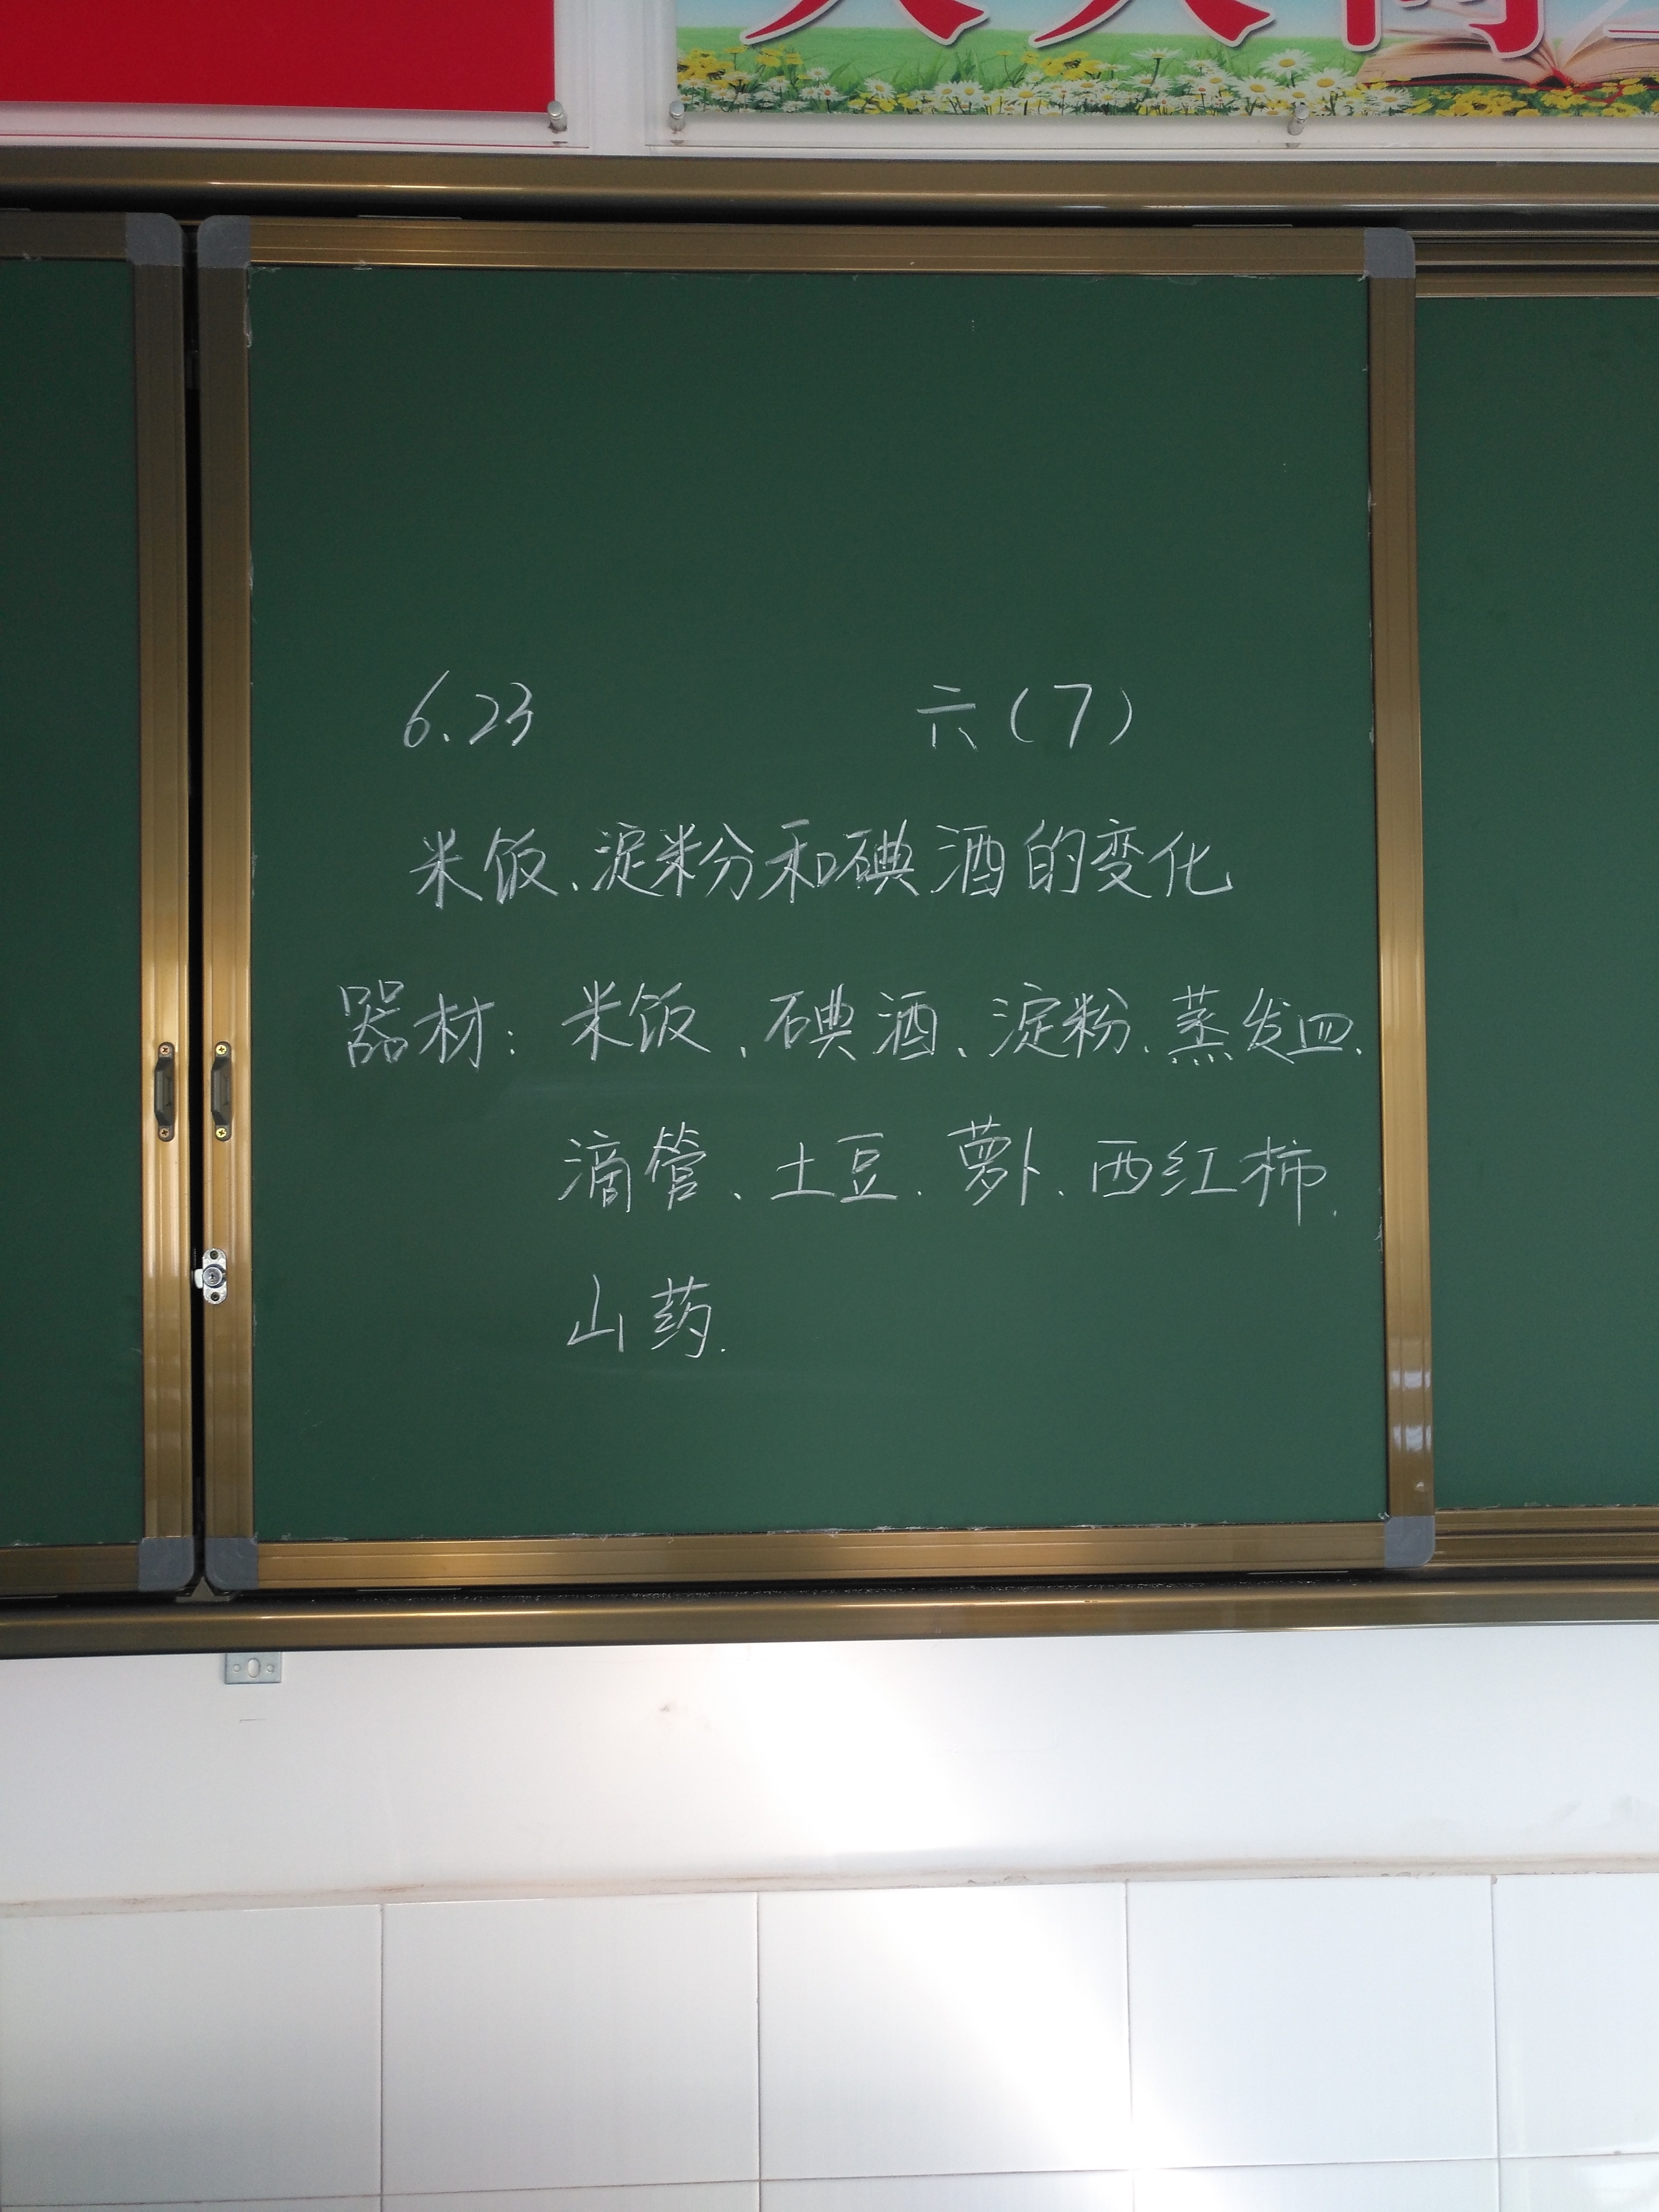 6.23 六(7)
米饭、淀粉和碘酒的变化
器材：米饭、碘酒、淀粉、蒸发皿、
滴管、土豆、萝卜、西红柿、
山药.